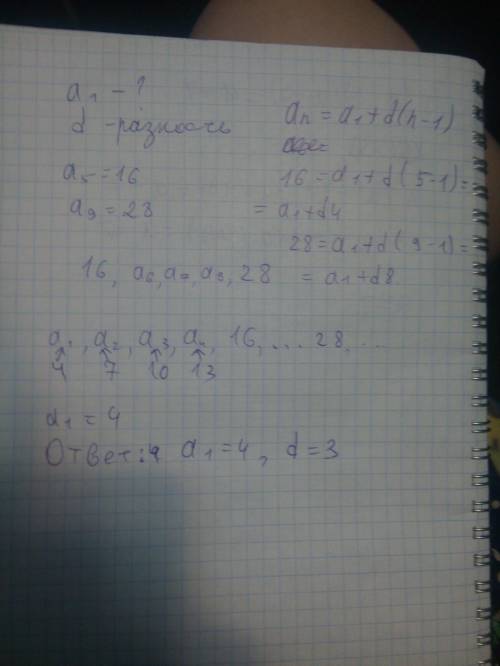 a₁ - ?
d - разность
a₅ = 16
a₉ = 28
aₙ = a₁ + d(n-1)
16 = a₁ + d(5-1) =
= a₁ + d4
28 = a₁ + d(9-1) =
= a₁ + d8
16, a₆, a₇, a₈, 28
a₁, a₂, a₃, a₄, 16, ... 28, ...
↑ ↑ ↑ ↑
4 7 10 13
a₁ = 4
Ответ: a₁ = 4, d = 3